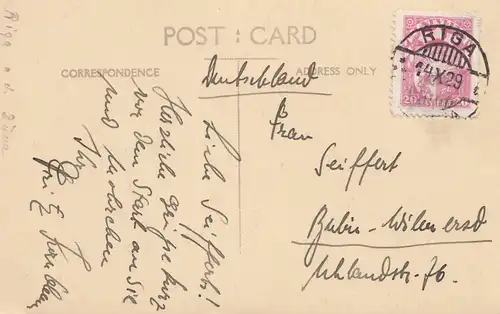 Riga a. d. Düna
POST : CARD
CORRESPONDENCE
ADDRESS ONLY
LATVIJA
RIGA
14X29
20
20
Liebe Seifferts!
Herzliche Grüsse kurz
vor dem Start an Sie
und
Ihr
Fritz
Deutschland
Frau
Seiffert
Berlin-Wilmersd
Uhlandstr. 76.